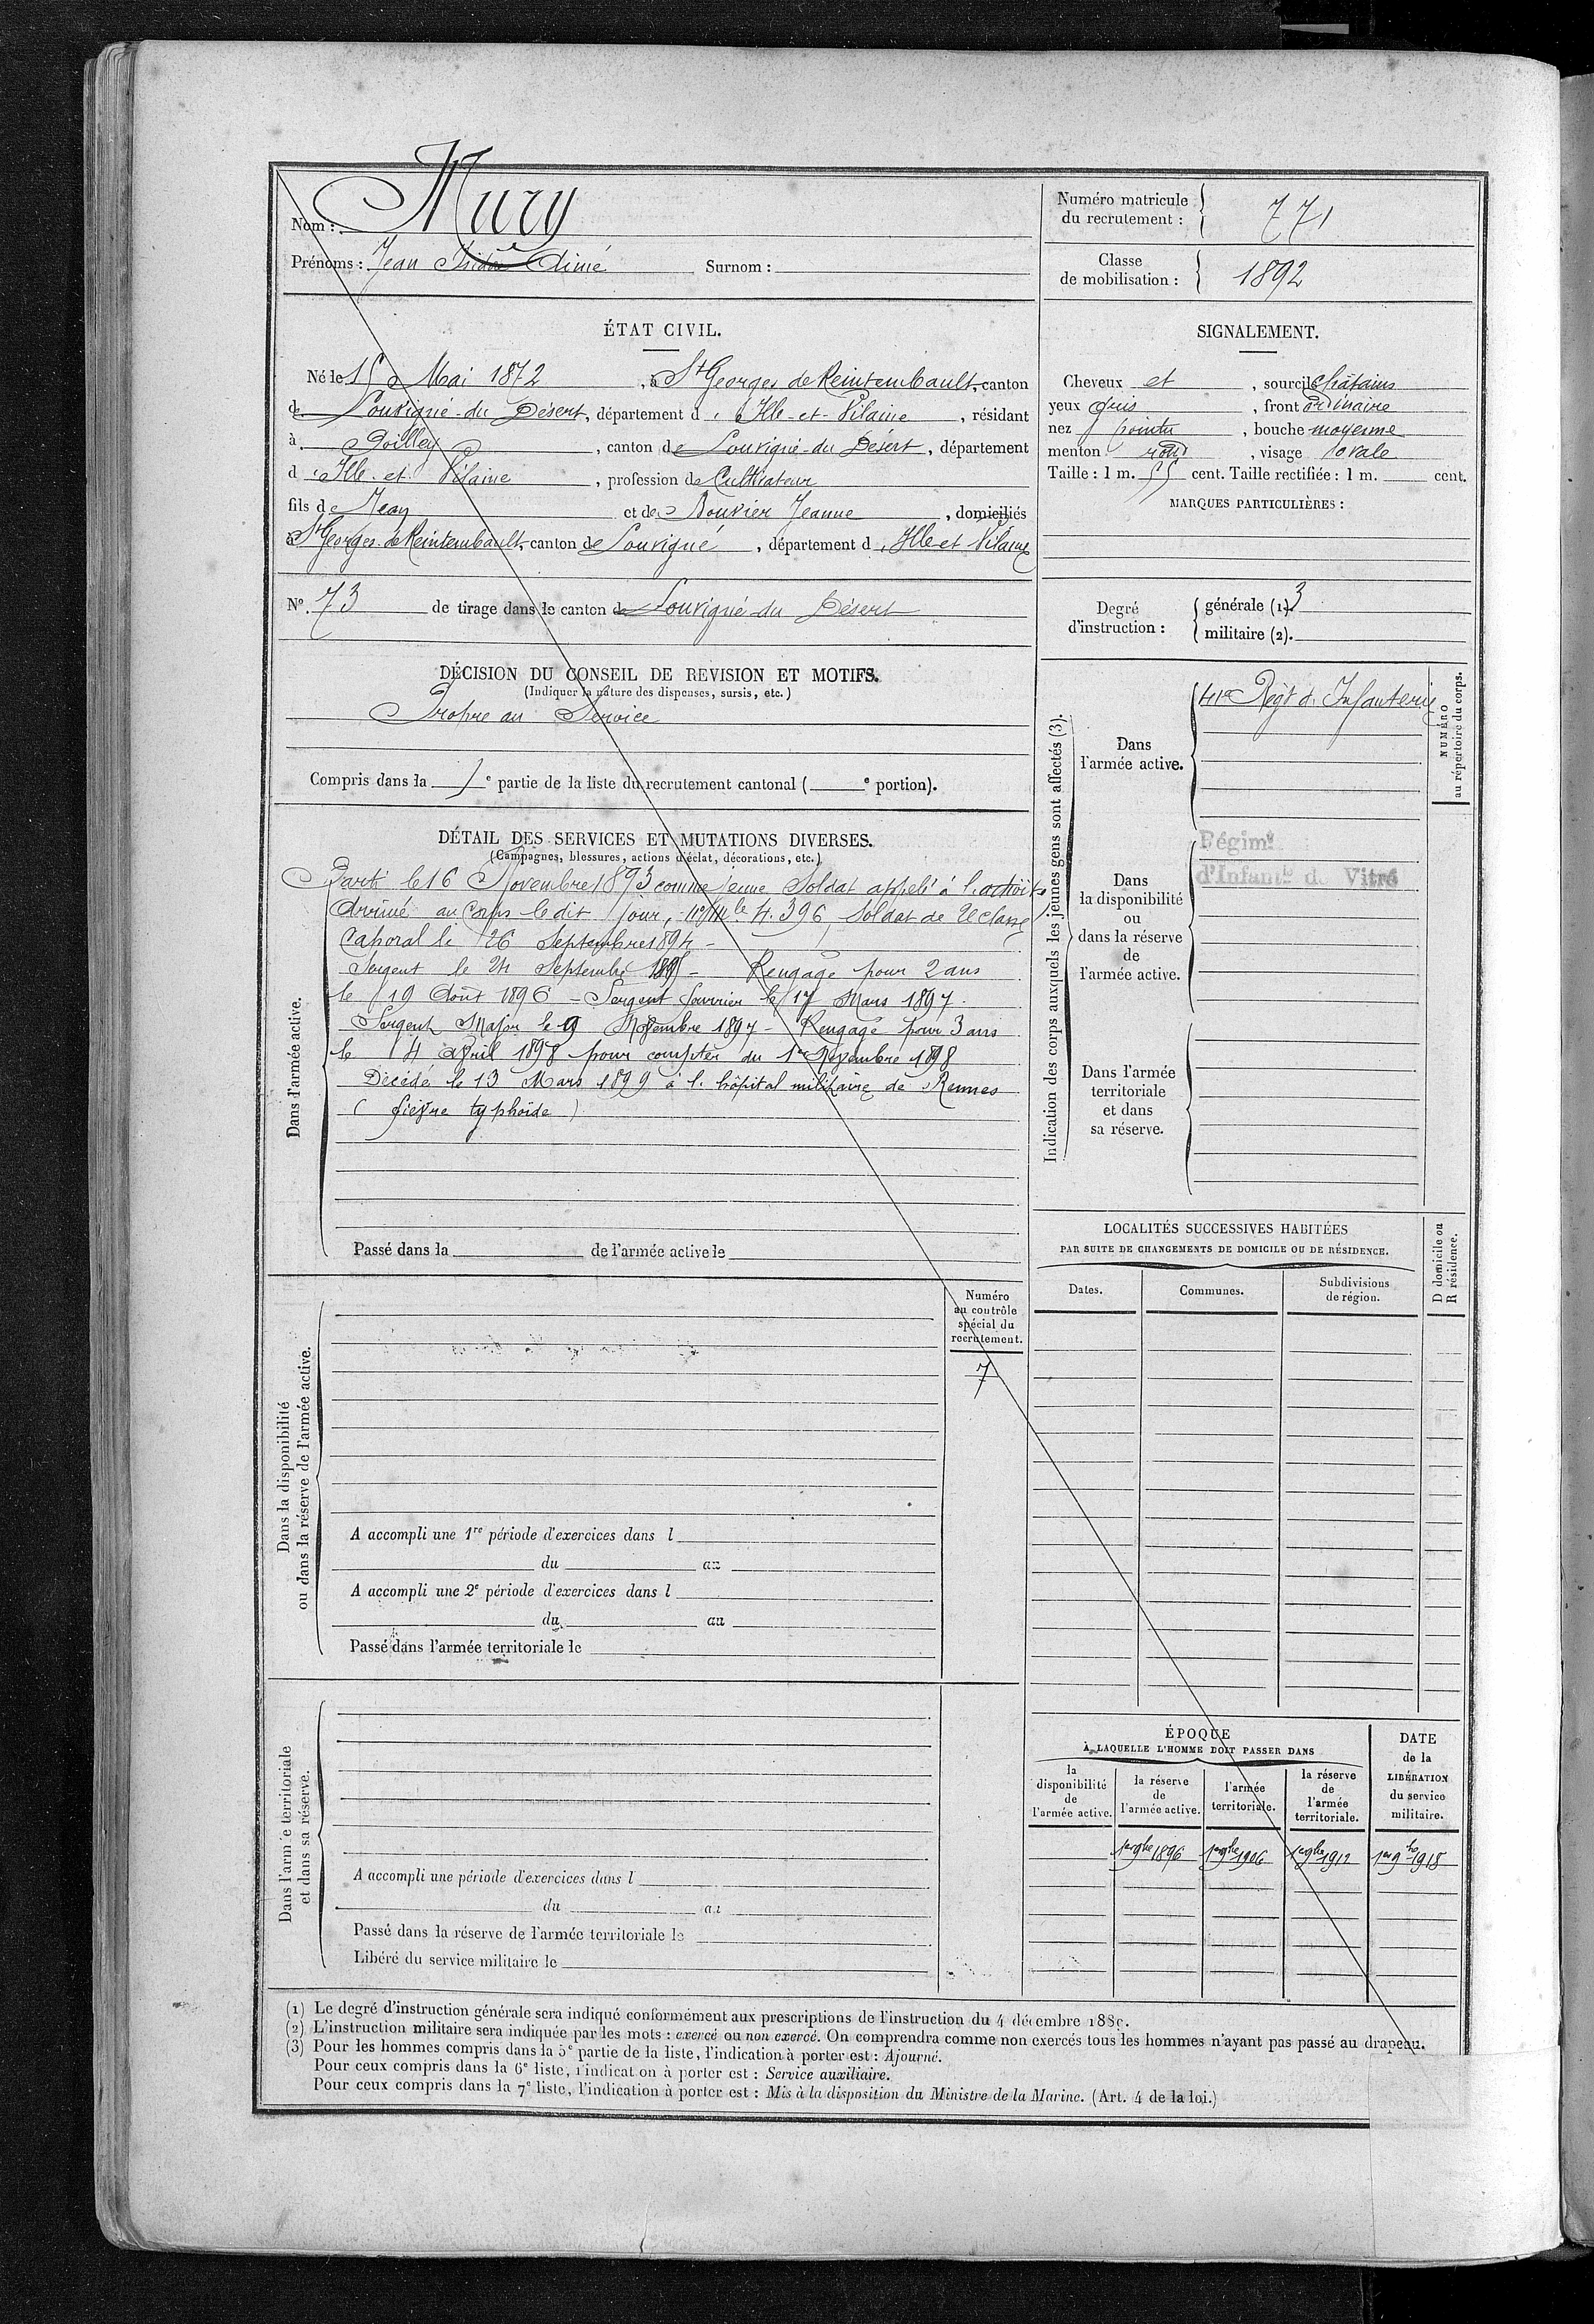 Nom : Mury
Prénoms : Jean Isidore Aimé Surnom :
Numéro matricule du recrutement : 771
Classe de mobilisation : 1892
ÉTAT CIVIL.
Né le 15 Mai 1872, à St Georges de Reintembault, canton
de Louvigné-du Désert, département d'Ille-et-Vilaine, résidant
à Poilley, canton de Louvigné-du Désert, département
d'Ille-et-Vilaine, profession de Cultivateur
fils de Jean et de Bouvier Jeanne, domiciliés
à St Georges de Reintembault, canton de Louvigné, département d'Ille et Vilaine
N°. 73 de tirage dans le canton de Louvigné du Désert
SIGNALEMENT.
Cheveux et, sourcils châtains
yeux gris, front ordinaire
nez pointu, bouche moyenne
menton rond, visage ovale
Taille : 1 m. 55 cent. Taille rectifiée : 1 m. cent.
MARQUES PARTICULIÈRES :
Degré d'instruction : générale (1). 3
militaire (2).
DÉCISION DU CONSEIL DE REVISION ET MOTIFS.
(Indiquer la nature des dispenses, sursis, etc.)
Propre au Service
Compris dans la 1e partie de la liste du recrutement cantonal ( e portion).
DÉTAIL DES SERVICES ET MUTATIONS DIVERSES.
(Campagnes, blessures, actions d'éclat, décorations, etc.)
Dans l'armée active.
Parti le 16 Novembre 1893 comme jeune Soldat appelé à l'activité
Arrivé au Corps le dit jour, n° Mle 4.396, Soldat de 2e classe
Caporal le 26 Septembre 1894 -
Sergent le 24 Septembre 1895 - Rengagé pour 2 ans
le 19 Août 1896 - Sergent fourrier le 17 Mars 1897.
Sergent Major le 9 Novembre 1897 - Rengagé pour 3 ans
le 4 Avril 1898 pour compter du 1er Novembre 1898
Décédé le 13 Mars 1899 à l'hôpital militaire de Rennes
( fièvre typhoïde )
Passé dans la de l'armée active le
Indication des corps auxquels les jeunes gens sont affectés (3).
NUMÉRO
au répertoire du corps.
Dans l'armée active.
41e Régt d'Infanterie
Dans la disponibilité ou dans la réserve de l'armée active.
Régimt
d'Infanie de Vitré
Dans l'armée territoriale et dans sa réserve.
LOCALITÉS SUCCESSIVES HABITÉES
PAR SUITE DE CHANGEMENTS DE DOMICILE OU DE RÉSIDENCE.
Dates. Communes. Subdivisions de région.
D domicile ou
R résidence.
Dans la disponibilité
ou dans la réserve de l'armée active.
Numéro
au contrôle
spécial du
recrutement.
7
A accompli une 1re période d'exercices dans l
du au
A accompli une 2e période d'exercices dans l
du au
Passé dans l'armée territoriale le
Dans l'armée territoriale
et dans sa réserve.
A accompli une période d'exercices dans l
du au
Passé dans la réserve de l'armée territoriale le
Libéré du service militaire le
ÉPOQUE
À LAQUELLE L'HOMME DOIT PASSER DANS
la disponibilité de l'armée active.
la réserve de l'armée active.
l'armée territoriale.
la réserve de l'armée territoriale.
DATE de la LIBÉRATION du service militaire.
1er 9bre 1896 1er 9bre 1906 1er 9bre 1912 1er 9bre 1918
(1) Le degré d'instruction générale sera indiqué conformément aux prescriptions de l'instruction du 4 décembre 1889.
(2) L'instruction militaire sera indiquée par les mots : exercé ou non exercé. On comprendra comme non exercés tous les hommes n'ayant pas passé au drapeau.
(3) Pour les hommes compris dans la 5e partie de la liste, l'indication à porter est : Ajourné.
Pour ceux compris dans la 6e liste, l'indication à porter est : Service auxiliaire.
Pour ceux compris dans la 7e liste, l'indication à porter est : Mis à la disposition du Ministre de la Marine. (Art. 4 de la loi.)